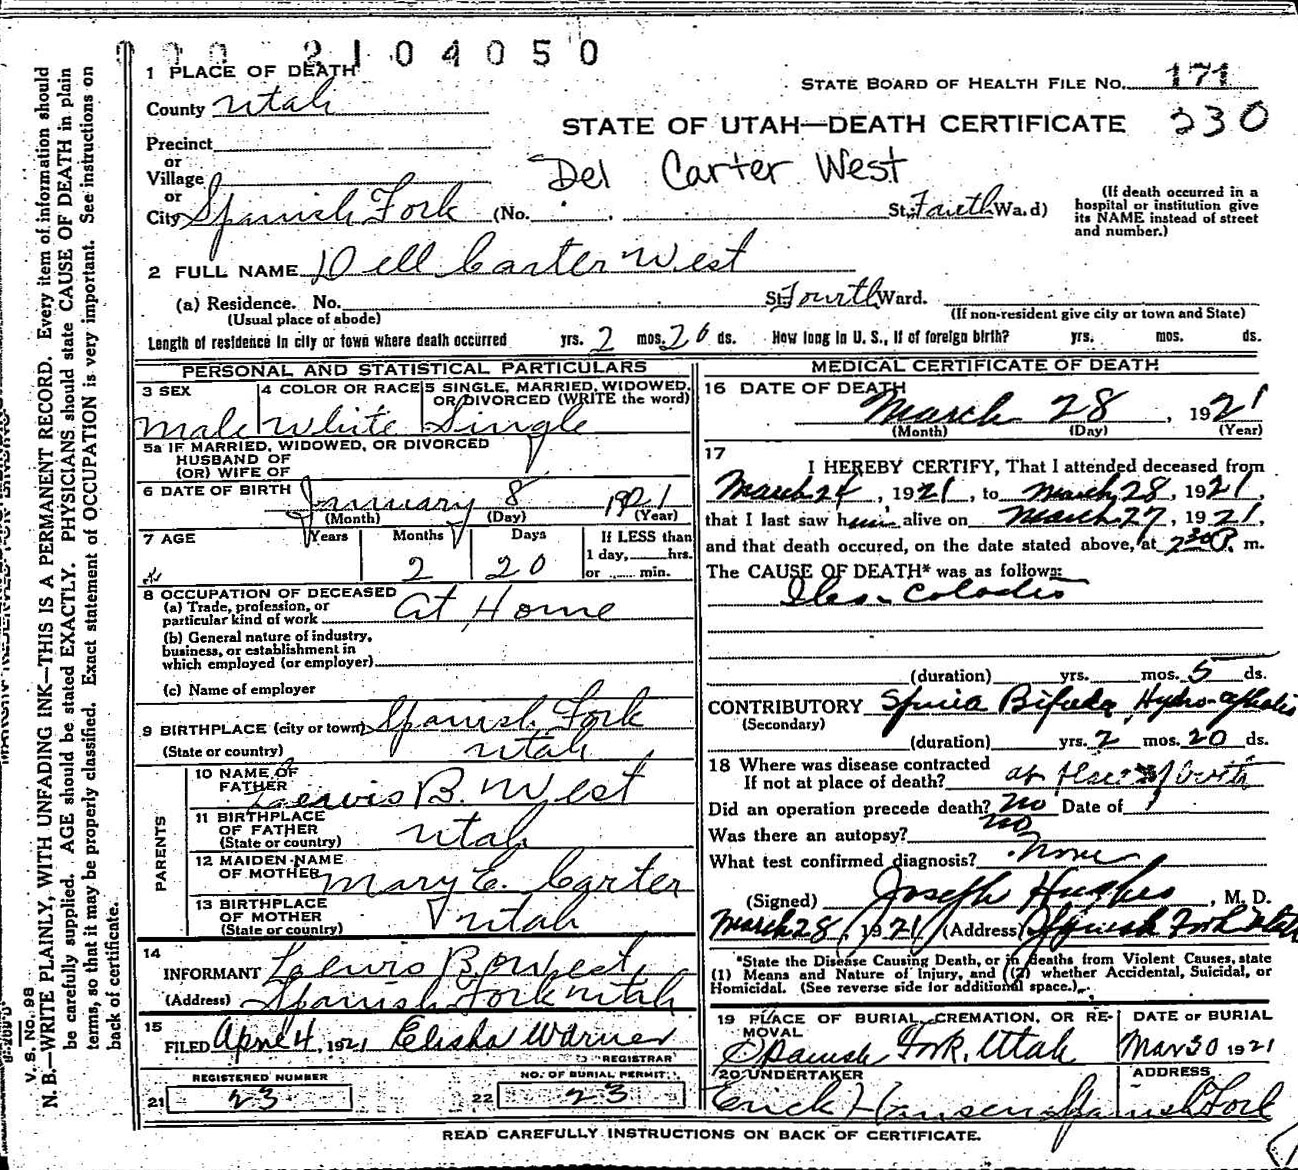 2104050
1 PLACE OF DEATH
STATE BOARD OF HEALTH FILE NO. 171
County Utah
STATE OF UTAH—DEATH CERTIFICATE 330
Precinct
or
Village
Del Carter West
or
City Spanish Fork (No. St. Fourth Ward)
(If death occurred in a
hospital or institution give
its NAME instead of street
and number.)
2 FULL NAME Dell Carter West
(a) Residence. No. St. Fourth Ward.
(Usual place of abode)
(If non-resident give city or town and State)
Length of residence in city or town where death occurred yrs. 2 mos. 20 ds. How long in U. S., if of foreign birth? yrs. mos. ds.
PERSONAL AND STATISTICAL PARTICULARS
3 SEX
Male
4 COLOR OR RACE
White
5 SINGLE, MARRIED, WIDOWED,
OR DIVORCED (WRITE the word)
Single
5a IF MARRIED, WIDOWED, OR DIVORCED
HUSBAND OF
(OR) WIFE OF
6 DATE OF BIRTH January 8 1921
(Month) (Day) (Year)
7 AGE Years Months Days If LESS than
1 day, hrs.
2 20 or min.
8 OCCUPATION OF DECEASED
(a) Trade, profession, or
particular kind of work At Home
(b) General nature of industry,
business, or establishment in
which employed (or employer)
(c) Name of employer
9 BIRTHPLACE (city or town) Spanish Fork
(State or country) Utah
PARENTS
10 NAME OF
FATHER Lewis B. West
11 BIRTHPLACE
OF FATHER
(State or country) Utah
12 MAIDEN NAME
OF MOTHER Mary E. Carter
13 BIRTHPLACE
OF MOTHER
(State or country) Utah
14
INFORMANT Lewis B. West
(Address) Spanish Fork Utah
15
FILED April 4, 1921 Elisha Warner
REGISTRAR
REGISTERED NUMBER
21 23
NO. OF BURIAL PERMIT
22 23
MEDICAL CERTIFICATE OF DEATH
16 DATE OF DEATH
March 28, 1921
(Month) (Day) (Year)
17
I HEREBY CERTIFY, That I attended deceased from
March 24, 1921, to March 28, 1921,
that I last saw him alive on March 27, 1921,
and that death occured, on the date stated above, at 2 30 P. m.
The CAUSE OF DEATH* was as follows:
(duration) yrs. mos. 5 ds.
CONTRIBUTORY Spina Bifida
(Secondary)
(duration) yrs. 2 mos. 20 ds.
18 Where was disease contracted
If not at place of death? at place of birth
Did an operation precede death? no Date of
Was there an autopsy? no
What test confirmed diagnosis? none
(Signed) Joseph Hughes, M. D.
March 28, 1921 (Address) Spanish Fork Utah
*State the Disease Causing Death, or in deaths from Violent Causes, state
(1) Means and Nature of Injury, and (2) whether Accidental, Suicidal, or
Homicidal. (See reverse side for additional space.)
19 PLACE OF BURIAL, CREMATION, OR RE-
MOVAL
Spanish Fork, Utah
DATE OF BURIAL
Mar 30 1921
20 UNDERTAKER
Erick Hansen
ADDRESS
Spanish Fork
READ CAREFULLY INSTRUCTIONS ON BACK OF CERTIFICATE.
V. S. No. 98
N. B.—WRITE PLAINLY, WITH UNFADING INK—THIS IS A PERMANENT RECORD. Every item of information should
be carefully supplied. AGE should be stated EXACTLY. PHYSICIANS should state CAUSE OF DEATH in plain
terms, so that it may be properly classified. Exact statement of OCCUPATION is very important. See instructions on
back of certificate.